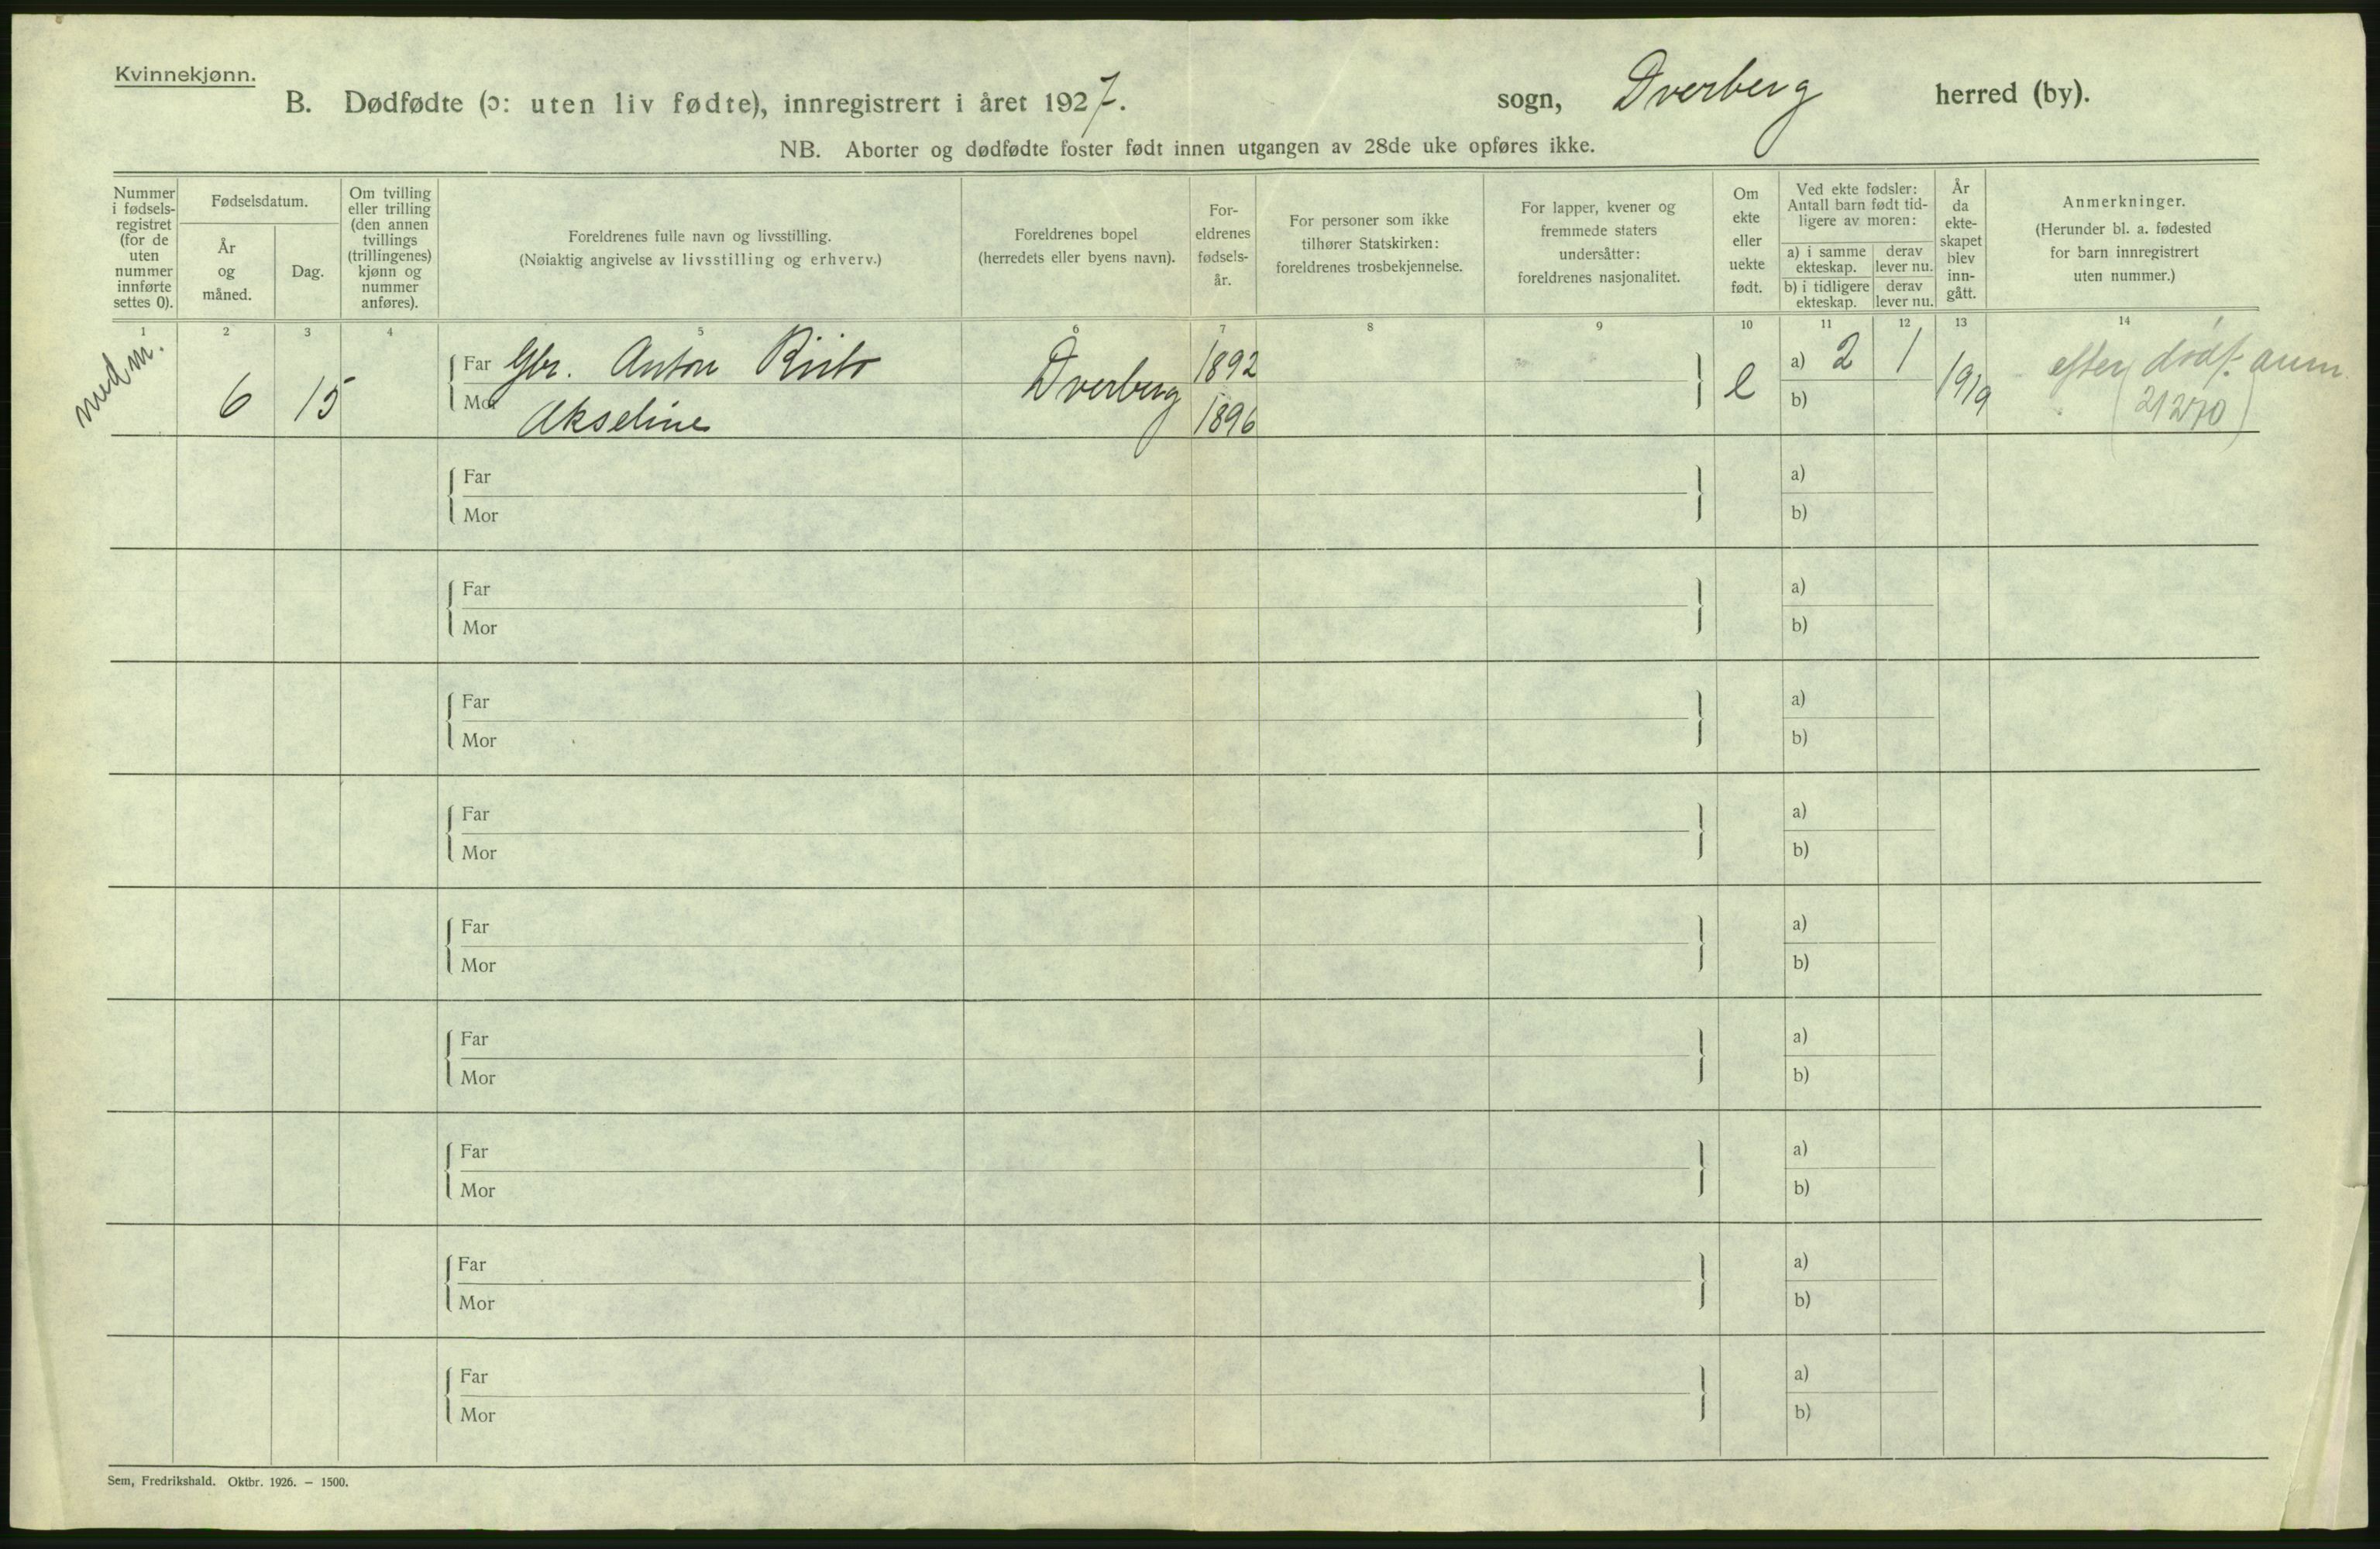 Kvinnekjønn.
B. Dødfødte (ɔ: uten liv fødte), innregistrert i året 1927. sogn, Dverberg herred (by).
NB. Aborter og dødfødte foster født innen utgangen av 28de uke opføres ikke.
Nummer i fødsels-registret (for de uten nummer innførte settes 0).
Fødselsdatum.
År og måned.
Dag.
Om tvilling eller trilling (den annen tvillings (trillingenes) kjønn og nummer anføres).
Foreldrenes fulle navn og livsstilling.
(Nøiaktig angivelse av livsstilling og erhverv.)
Foreldrenes bopel
(herredets eller byens navn).
For-eldrenes fødsels-år.
For personer som ikke tilhører Statskirken: foreldrenes trosbekjennelse.
For lapper, kvener og fremmede staters undersåtter: foreldrenes nasjonalitet.
Om ekte eller uekte født.
Ved ekte fødsler: Antall barn født tid-ligere av moren:
a) i samme ekteskap.
derav lever nu.
b) i tidligere ekteskap.
derav lever nu.
År da ekte-skapet blev inn-gått.
Anmerkninger.
(Herunder bl. a. fødested for barn innregistrert uten nummer.)
1 2 3 4 5 6 7 8 9 10 11 12 13 14
med m. 6 15
Far Gbr. Anton 1892
Mor Akseline Dverberg 1896
e a) 2 1 1919
b)
efter dødf. anm.
(21270)
Far a)
Mor b)
Far a)
Mor b)
Far a)
Mor b)
Far a)
Mor b)
Far a)
Mor b)
Far a)
Mor b)
Far a)
Mor b)
Far a)
Mor b)
Far a)
Mor b)
Sem, Fredrikshald. Oktbr. 1926. – 1500.